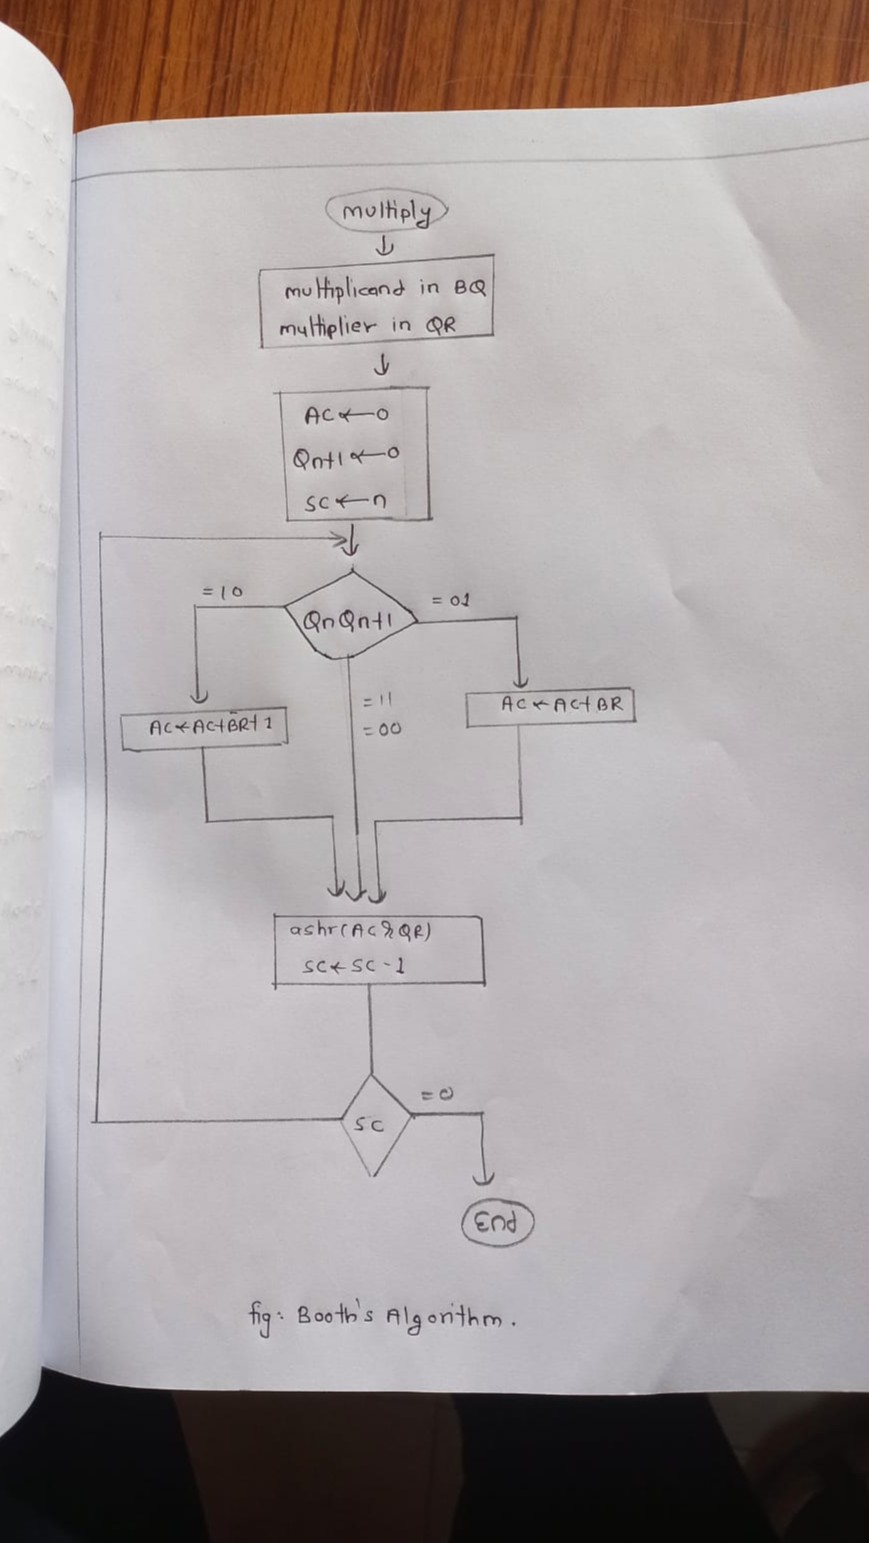 multiply
multiplicand in BQ
multiplier in QR
AC←0
Qn+1←0
SC←n
=10
QnQn+1
=01
AC←AC+B̅R+1
=11
=00
AC←AC+BR
ashr(AC & QR)
SC←SC-1
SC
=0
End
fig: Booth's Algorithm.